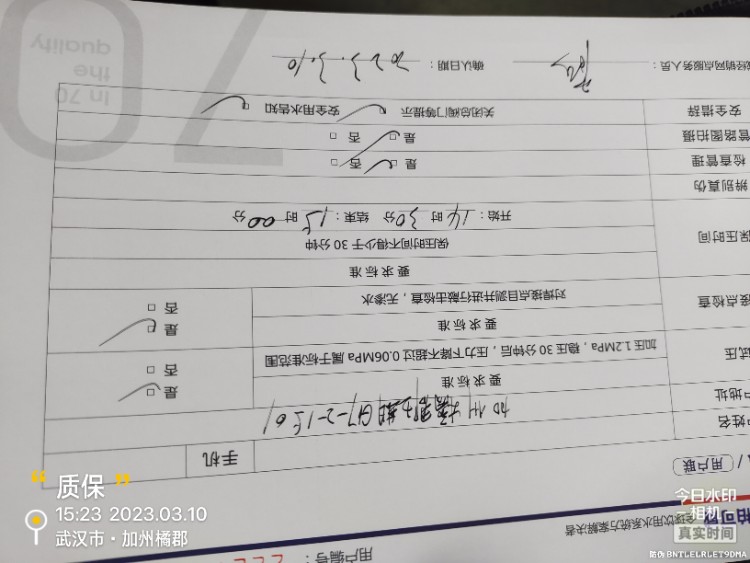 用户编号：
全球饮用水系统方案解决者
用户联
手机
户姓名
户地址 加州橘郡G7-2-1501
试压 要求标准
加压1.2MPa，稳压30分钟后，压力下降不超过0.06MPa属于标准范围
是 □
否 □
接点检查 要求标准
对焊接点目测并进行敲击检查，无渗水
是 □
否 □
保压时间 要求标准
保压时间不得少于30分钟
开始：14时30分 结束：15时00分
辨别真伪
检查管理 是 □ 否 □
管路图拍摄 是 □ 否 □
安全措辞 关闭总阀门等提示 安全用水告知
经销网点服务人员：
确认日期：2023.3.10
In 70
the
quality
70
“质保”
15:23 2023.03.10
武汉市·加州橘郡
今日水印
相机
真实时间
防伪 BNTLELRLET9DMA